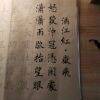 滿江紅·岳飛
怒髮衝冠憑闌處
瀟瀟雨歇抬望眼